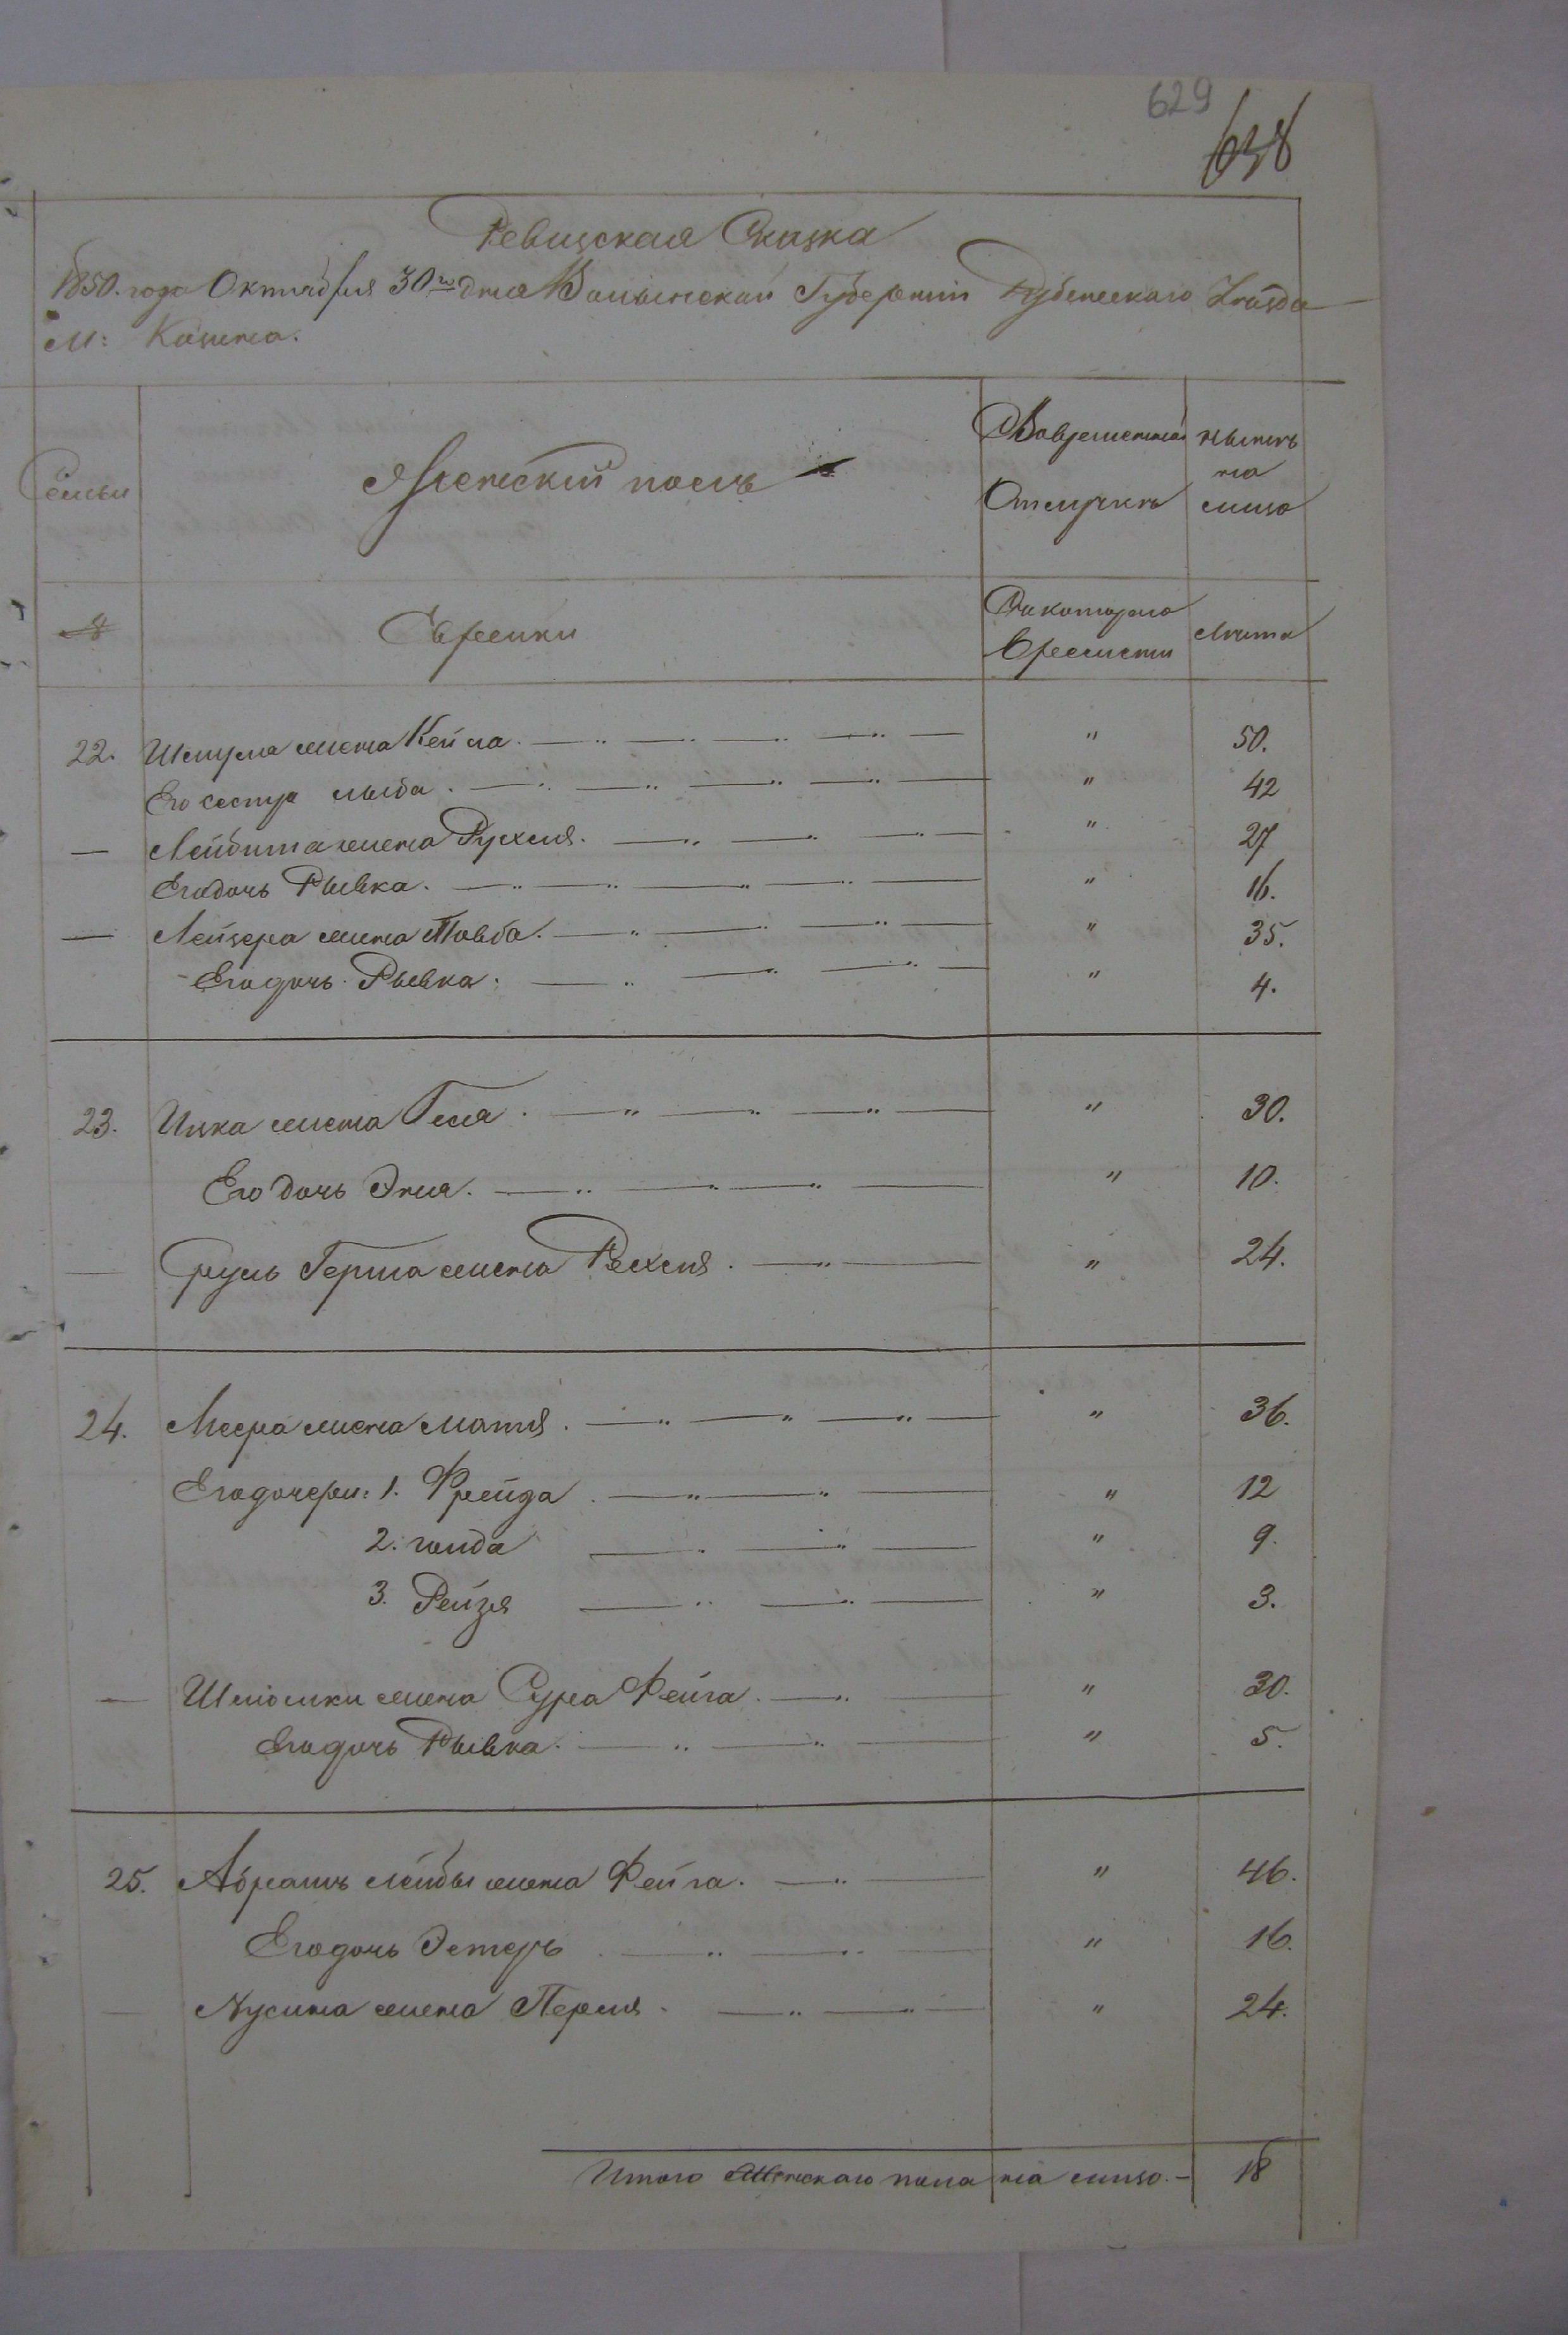 629
638
Ревизская Сказка
1850. года Октября 30го дня Волынской Губернии Дубенскаго Уезда
М: Козина.
Семьи
Женский полъ
Вовременной
Отлучкѣ
нынѣ
на
лицо
Еврейки
Съ котораго
Времяни
Лѣта
22. Шмуля жена Кейла. " 50.
Его сестра хыба. " 42
— Лейбиша жена Рухля. " 27
Его дочь Рывка. " 16.
— Лейзера жена Товба. " 35.
Его дочь Рывка. " 4.
23. Ицка жена Геля. " 30.
Его дочь Эня. " 10.
— Сруль Герша жена Рехля. " 24.
24. Меера жена Матля. " 36.
Его дочери: 1. Фрейда " 12
2. голда " 9.
3. Рейзя " 3.
— Шліомки жена Сура Фейга. " 30.
Его дочь Рывка. " 5.
25. Абрамъ Лейбы жена Фейга. " 46.
Его дочь Эстеръ " 16.
— Нусина жена Перля. " 24.
Итого Женскаго пола на лицо. — 18